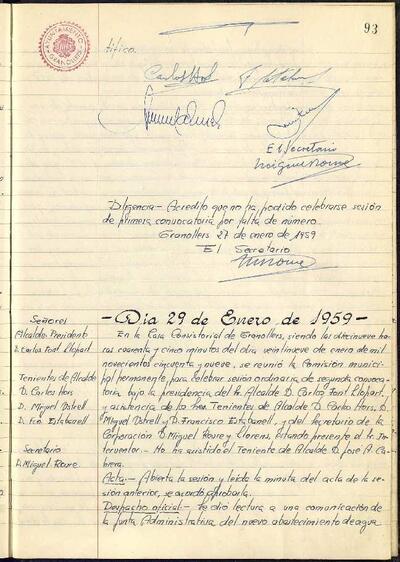 93
AYUNTAMIENTO
GRANOLLERS
tifico.
El Secretario
Diligencia.- Acredito que no ha podido celebrarse sesión
de primera convocatoria por falta de número.
Granollers 27 de enero de 1959
El Secretario
-Día 29 de Enero de 1959-
Señores
Alcalde Presidente
D. Carlos Font Llopart
Tenientes de Alcalde
D. Carlos Hors
D. Miguel Ystrell
D. Fco Estabanell
Secretario
D. Miguel Roure
En la Casa Consistorial de Granollers, siendo las diecinueve ho-
ras cuarenta y cinco minutos del día veintinueve de enero de mil
novecientos cincuenta y nueve, se reunió la Comisión munici-
pal permanente, para celebrar sesión ordinaria de segunda convoca-
toria, bajo la presidencia del Sr. Alcalde D. Carlos Font Llopart,
y asistencia de los Sres. Tenientes de Alcalde D. Carlos Hors, D.
Miguel Ystrell y D. Francisco Estabanell, y del secretario de la
Corporación D. Miguel Roure y Clarens. Estando presente el Sr. In-
terventor.- No ha asistido el Teniente de Alcalde D. José A. Ca-
brera.
Acta.- Abierta la sesión y leída la minuta del acta de la se-
sión anterior, se acordó aprobarla.
Despacho oficial.- Se dio lectura a una comunicación de
la Junta Administrativa del nuevo abastecimiento de agua